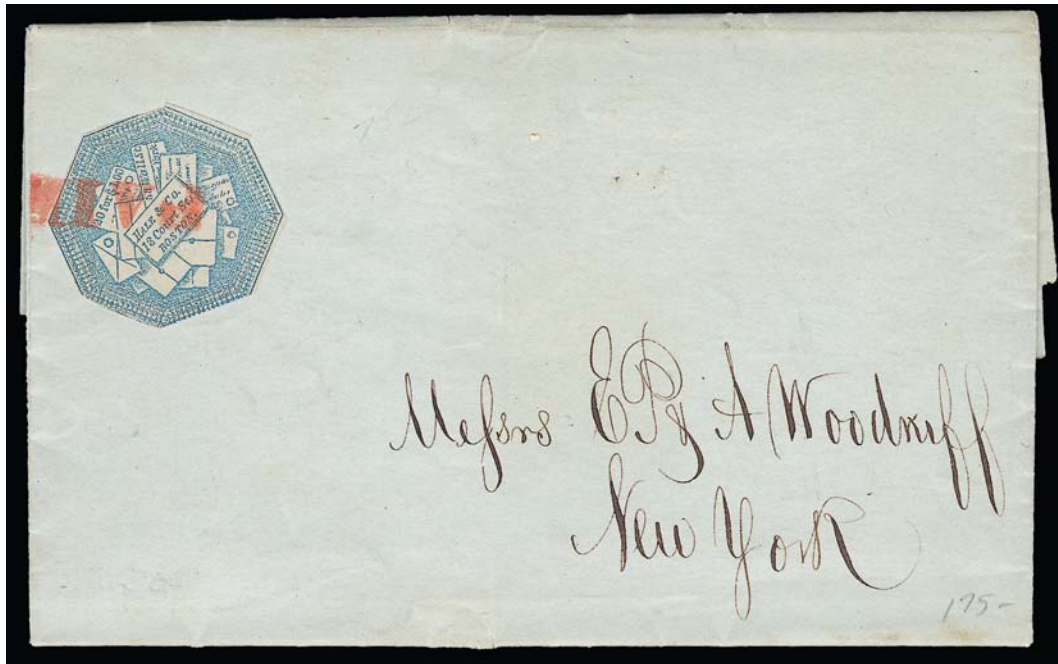 20 for $1.00
HALE & Co.
13 Court St.
BOSTON.
Messrs E P & A Woodruff
New York
175-